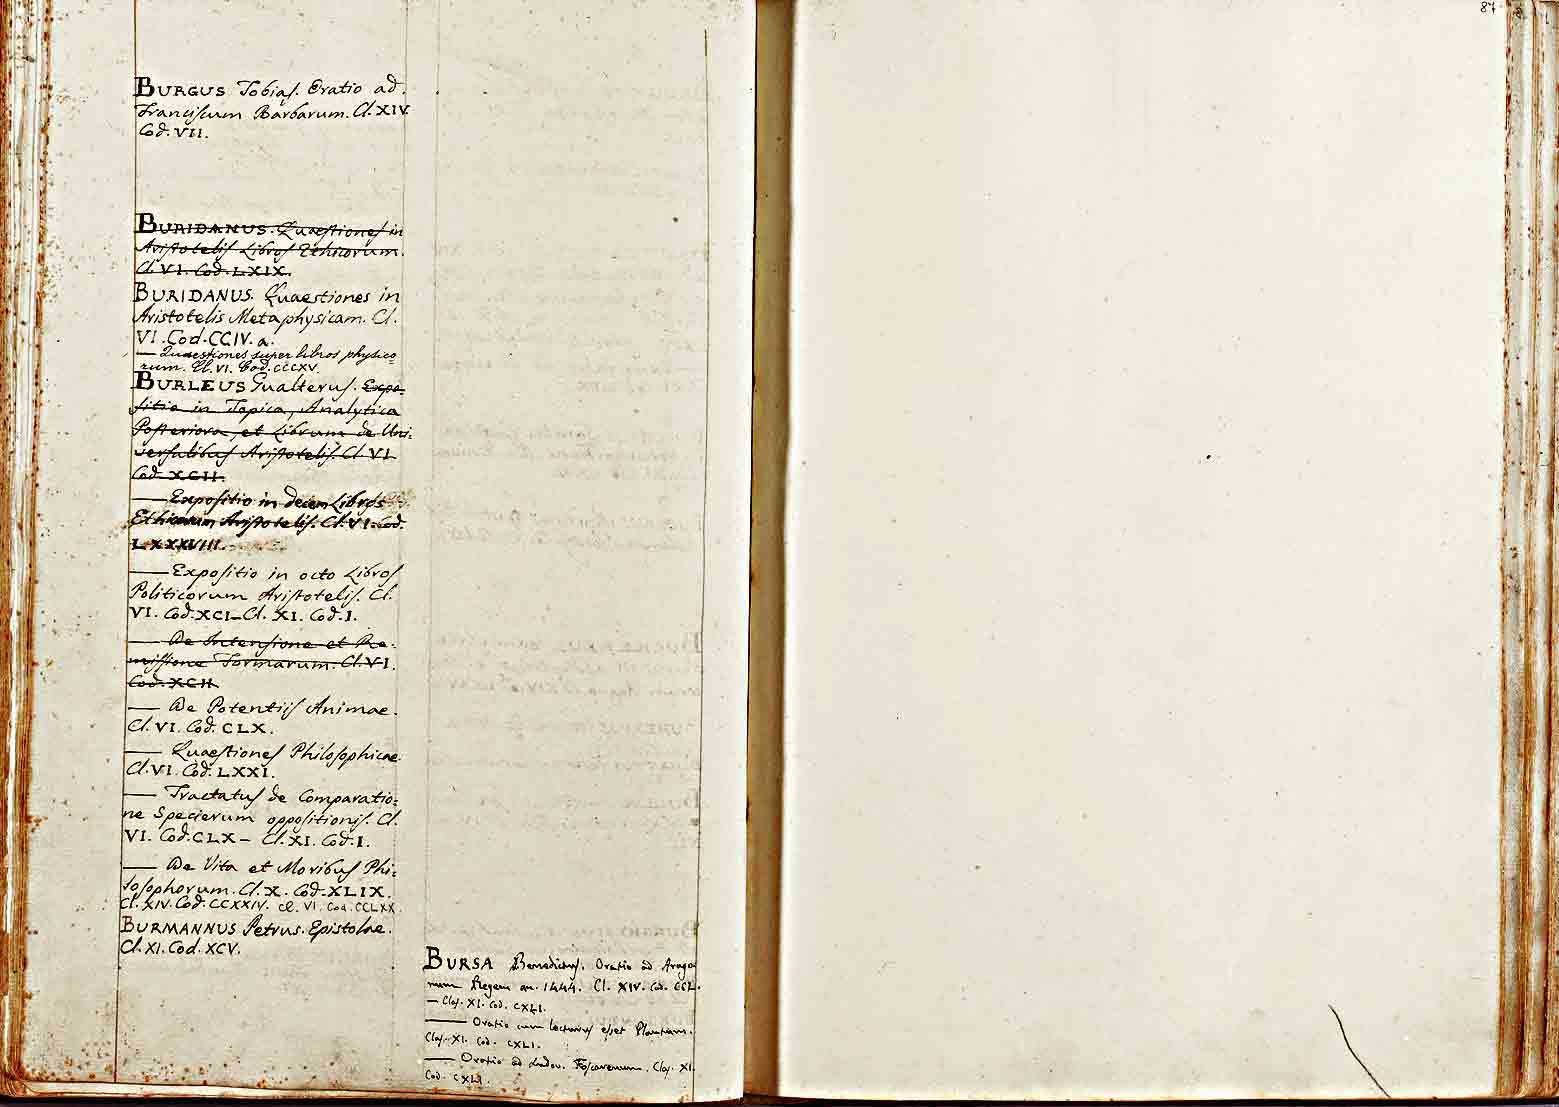 87
BURGUS Tobias. Oratio ad
Franciscum Barbarum. Cl. XIV.
Cod. VII.
BURIDANUS. Quaestiones in
Aristotelis Libros Ethicorum.
Cl. VI. Cod. LXIX.
BURIDANUS. Quaestiones in
Aristotelis Metaphysicam. Cl.
VI. Cod. CCIV. a.
— Quaestiones super libros physico=
rum. Cl. VI. Cod. CCCXV.
BURLEUS Gualterus. Expo=
sitio in Topica, Analytica
Posteriora, et Librum de Uni=
versalibus Aristotelis. Cl. VI
Cod. XCII.
— Expositio in decem Libros
Ethicorum Aristotelis. Cl. VI. Cod.
LXXXVIII.
— Expositio in octo Libros
Politicorum Aristotelis. Cl.
VI. Cod. XCI — Cl. XI. Cod. I.
— De Intensione et Re=
missione Formarum. Cl. VI.
Cod. XCII.
— De Potentiis Animae.
Cl. VI. Cod. CLX.
— Quaestiones Philosophicae.
Cl. VI. Cod. LXXI.
— Tractatus de Comparatio=
ne Specierum oppositionis. Cl.
VI. Cod. CLX — Cl. XI. Cod. I.
— De Vita et Moribus Phi=
losophorum. Cl. X. Cod. XLIX.
Cl. XIV. Cod. CCXXIV. Cl. VI. Cod. CCLXX.
BURMANNUS Petrus. Epistolae.
Cl. XI. Cod. XCV.
BURSA Benedictus. Oratio ad Arago
num Regem an. 1444. Cl. XIV. Cod. CCL.
— Clas. XI. Cod. CXLI.
— Oratio cum lecturus esset Plautum.
Clas. XI. Cod. CXLI.
— Oratio ad Ludov. Foscarenum. Clas. XI.
Cod. CXLI.